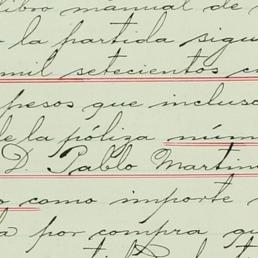 libro manual de
la partida sigu
mil setecientos c
pesos que inclus
de la póliza núm
D. Pablo Martin
como importe
por compra qu